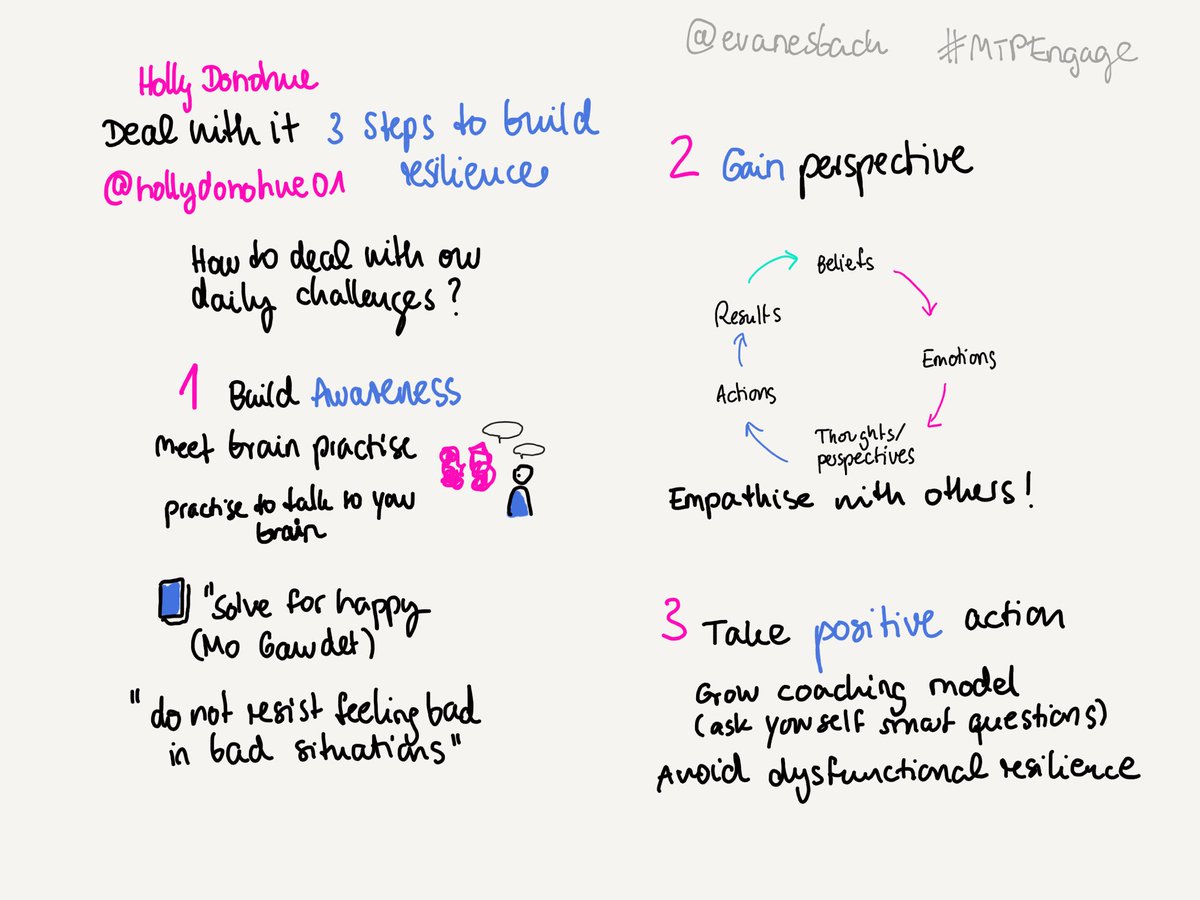 @evanesbach #MTPEngage
Holly Donohue
Deal with it 3 steps to build
resilience
@hollydonohue01
How to deal with our
daily challenges?
1 Build Awareness
Meet brain practise
practise to talk to your
brain
"Solve for happy
(Mo Gawdet)
"do not resist feeling bad
in bad situations"
2 Gain perspective
Beliefs
Emotions
Thoughts/
perspectives
Actions
Results
Empathise with others!
3 Take positive action
Grow coaching model
(ask yourself smart questions)
Avoid dysfunctional resilience